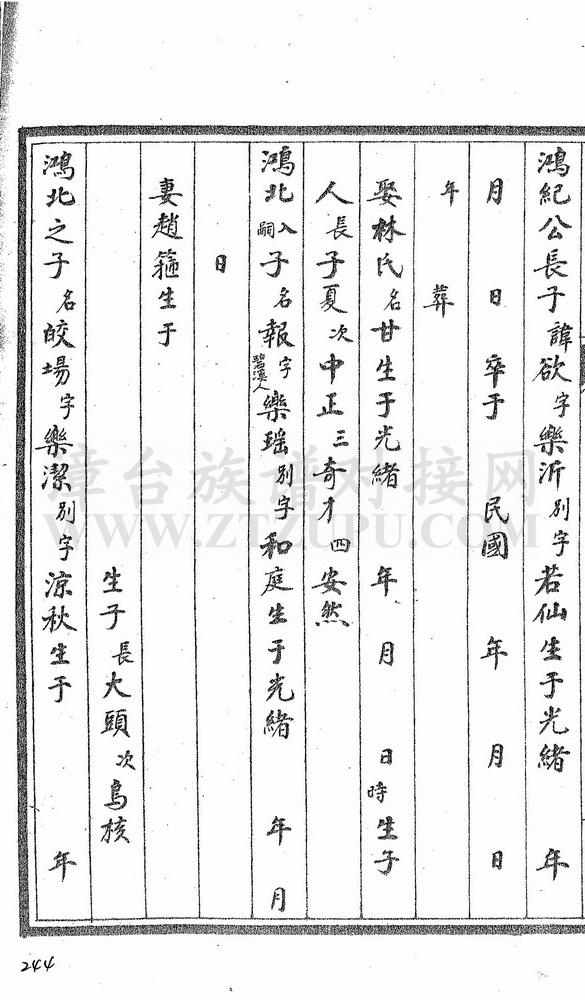 鴻紀公長子諱欲字樂沂別字若仙生于光緒 年
月 日卒于民國 年 月 日
年 葬
娶林氏名甘生于光緒 年 月 日時生子
人長子夏次中正三奇才四安然
鴻北入嗣子名報字碧溪人樂瑶別字和庭生于光緒 年 月
日
妻趙箍生于
生子長大頭次烏核
鴻北之子名皎場字樂潔別字涼秋生于 年
244
漳台族谱对接网
WWW.ZTZUPU.COM